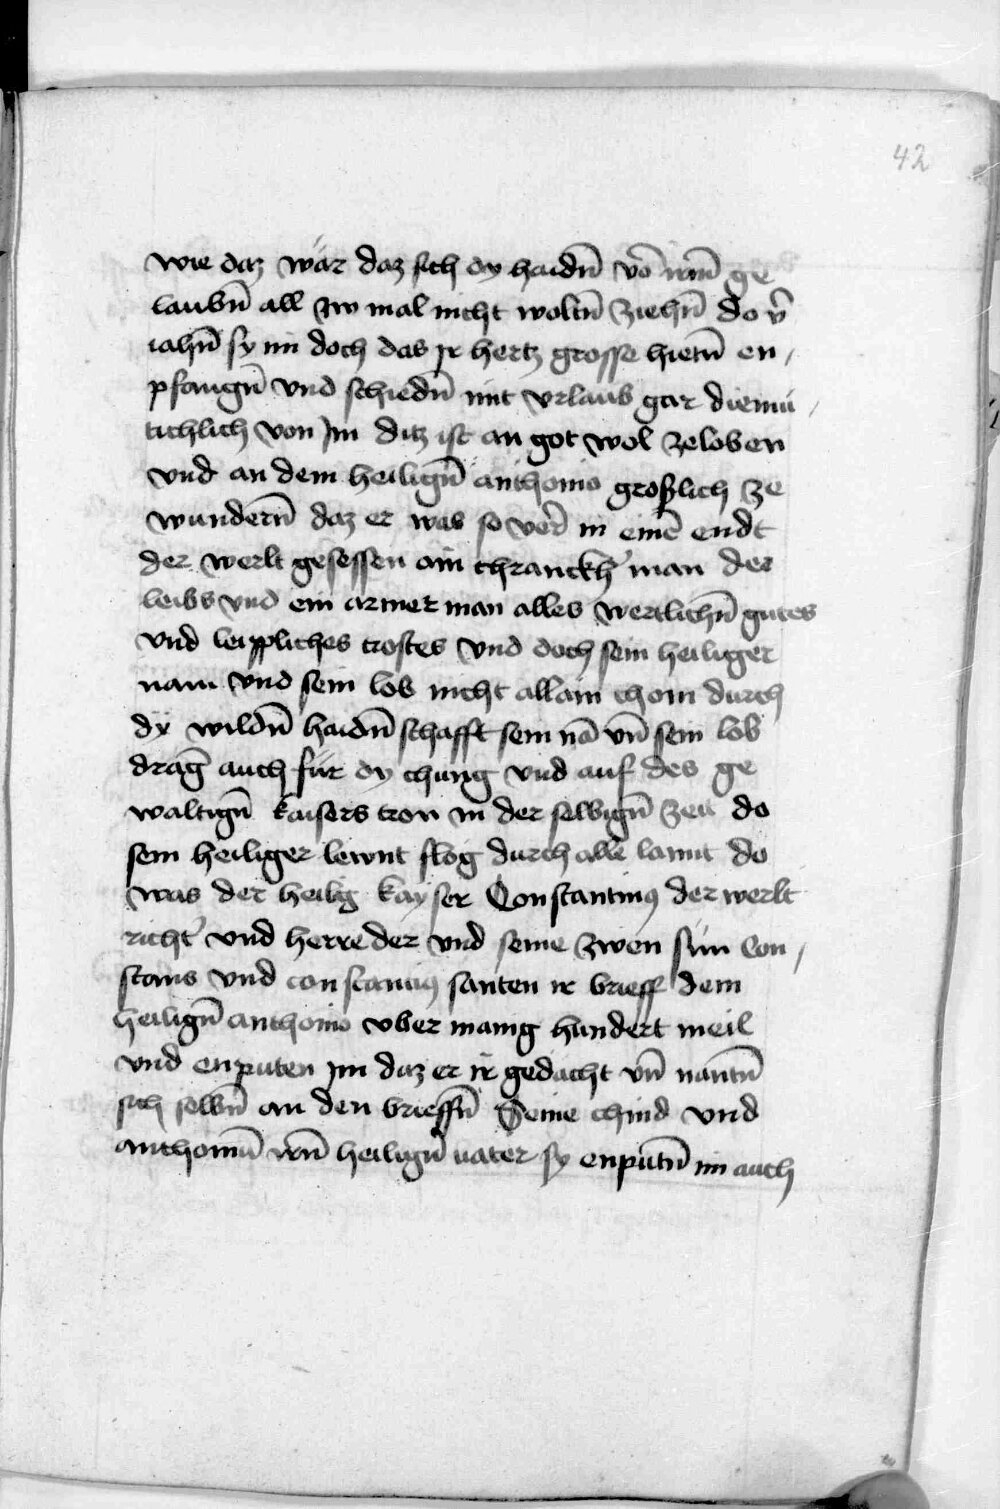 42
wie daz wär daz sich dy haidn̄ vō irm̄ ge
laubn̄ all zw mal nicht woltn̄ ziehn̄ do v̄
iahn̄ sy im doch das jr hertz grosse hietn̄ en,
pfangn̄ vnd schiedn̄ mit vrlaub gar diemü,
tichlich von Jm ditz ist an got wol zeloben
vnd an dem heilign̄ anthonio groslich ze
wundern̄ daz er was so ver̄ in einē endt
der werlt gesessen ain chranckh' man des
leibs vnd ein armer man alles wertlichn̄ gutes
vnd leippliches trostes vnd doch sein heiliger
nam vnd sein lob nicht allain chom durch
dÿ wildn̄ haidn̄ schafft sein nā vn̄ sein lob
draḡ auch für dy chung vnd auf des ge
waltign̄ kaisers tron in der selbign̄ zeit do
sein heiliger lewnt flog durch alle lannt do
was der heilig kayser Constantinꝯ der werlt
richt' vnd herre der vnd seine zwen sün Con,
stans vnd constantiꝯ santen ir brieff dem
heilign̄ anthonio vber manig hundert meil
vnd enputen jm daz er ir gedächt vn̄ nantn̄
sich selbn̄ an den brieffn̄ Seine chind vnd
anthoniū irn̄ heilign̄ vater sy enputn̄ im auch